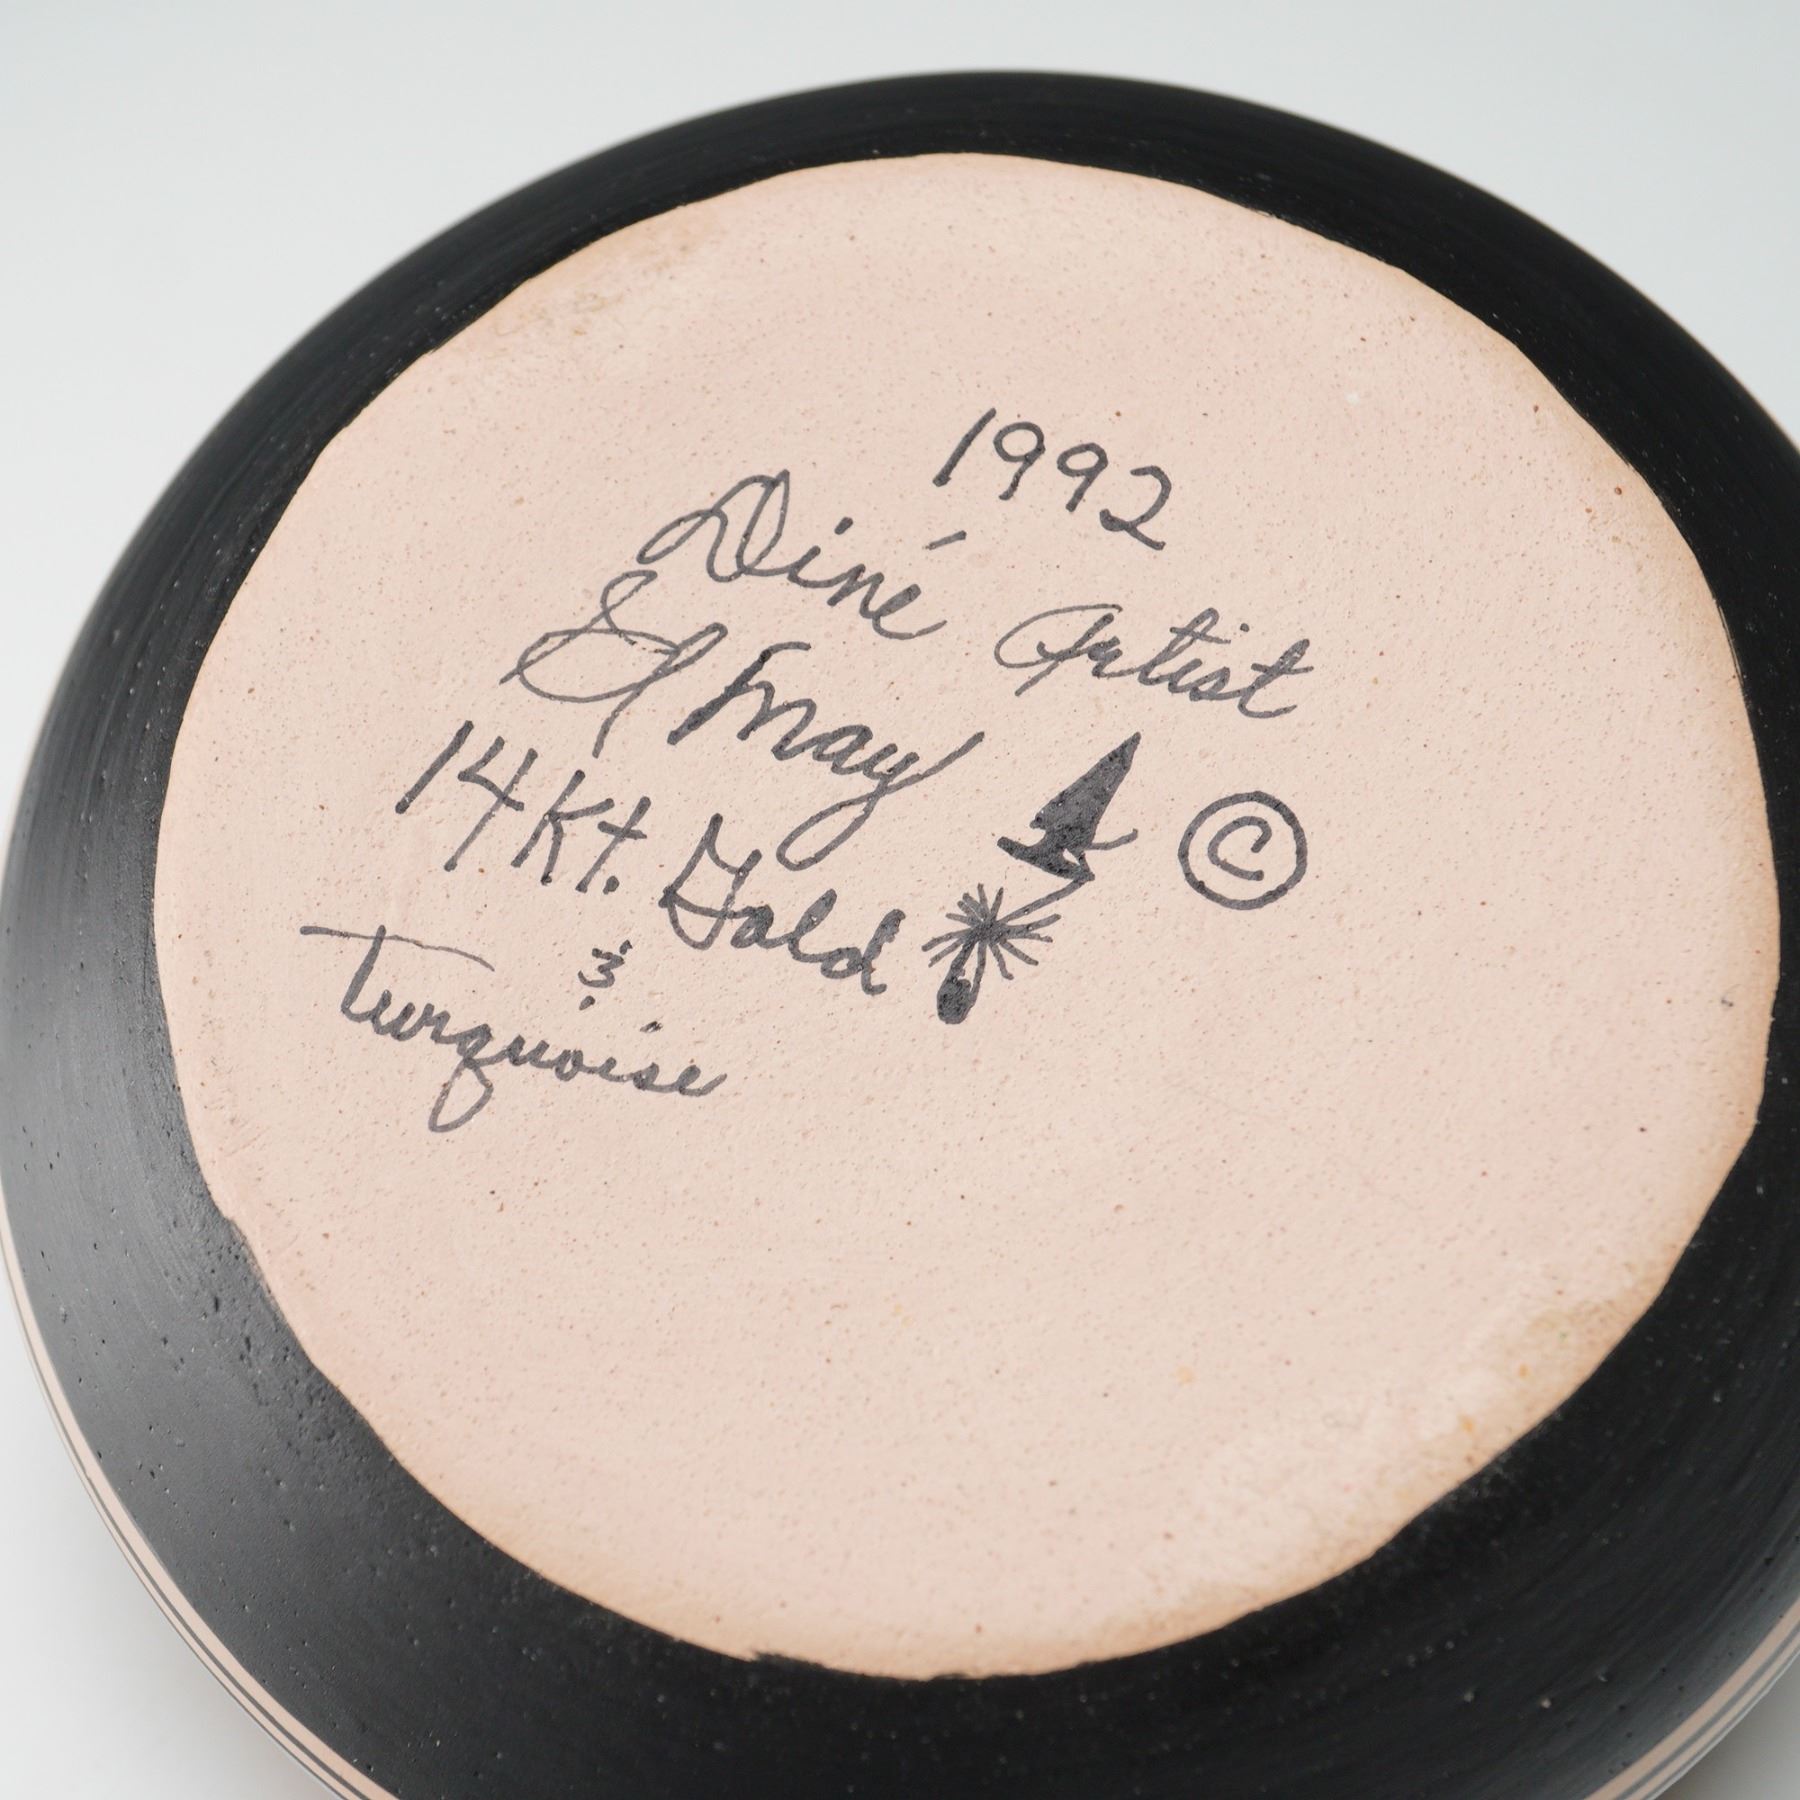 1992
Diné Artist
May ©
14Kt. Gold
&
Turquoise